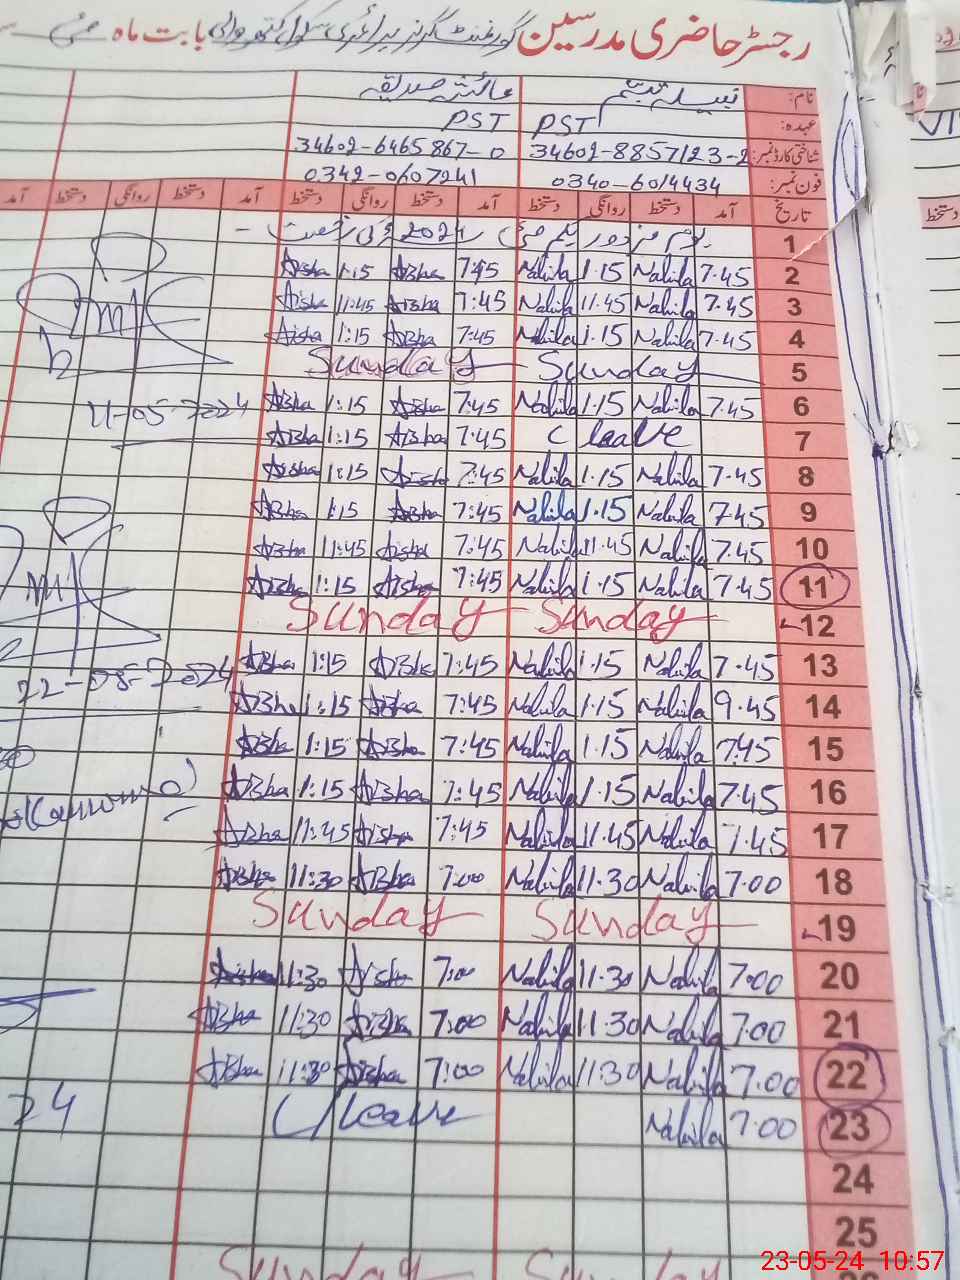 رجسٹر حاضری مدرسین گورنمنٹ گرلز پرائمری سکول بابت ماہ مئی
نام: نبیلہ تبسم عائشہ صدیقہ
عہدہ: PST PST
شناختی کارڈ نمبر: 34602-8857123-2 34602-6465867-0
فون نمبر: 0340-6014434 0342-0607241
تاریخ آمد دستخط روانگی دستخط آمد دستخط روانگی دستخط آمد دستخط روانگی دستخط آمد
دستخط
1 یوم مزدور یکم مئی 2024 کی رخصت -
2 7.45 Nabila 1.15 Nabila 7:45 Aisha 1:15 Aisha
3 7.45 Nabila 11.45 Nabila 7:45 Aisha 11:45 Aisha
4 7.45 Nabila 1.15 Nabila 7:45 Aisha 1:15 Aisha
5 Sunday Sunday
6 7.45 Nabila 1.15 Nabila 7:45 Aisha 1:15 Aisha
11-05-2024
7 C leave 7:45 Aisha 1:15 Aisha
8 7.45 Nabila 1.15 Nabila 7:45 Aisha 1:15 Aisha
9 7.45 Nabila 1.15 Nabila 7:45 Aisha 1:15 Aisha
10 7.45 Nabila 11.45 Nabila 7:45 Aisha 11:45 Aisha
11 7.45 Nabila 1.15 Nabila 7:45 Aisha 1:15 Aisha
12 Sunday Sunday
13 7.45 Nabila 1.15 Nabila 7:45 Aisha 1:15 Aisha
22-05-2024
14 9.45 Nabila 1.15 Nabila 7:45 Aisha 1:15 Aisha
15 7.45 Nabila 1.15 Nabila 7:45 Aisha 1:15 Aisha
16 7.45 Nabila 1.15 Nabila 7:45 Aisha 1:15 Aisha
17 7.45 Nabila 11.45 Nabila 7:45 Aisha 11:45 Aisha
18 7.00 Nabila 11.30 Nabila 7:00 Aisha 11:30 Aisha
19 Sunday Sunday
20 7.00 Nabila 11.30 Nabila 7:00 Aisha 11:30 Aisha
21 7.00 Nabila 11.30 Nabila 7:00 Aisha 11:30 Aisha
22 7.00 Nabila 11:30 Nabila 7:00 Aisha 11:30 Aisha
23 7.00 Nabila C/leave
24
24
25
Sunday Sunday
23-05-24 10:57